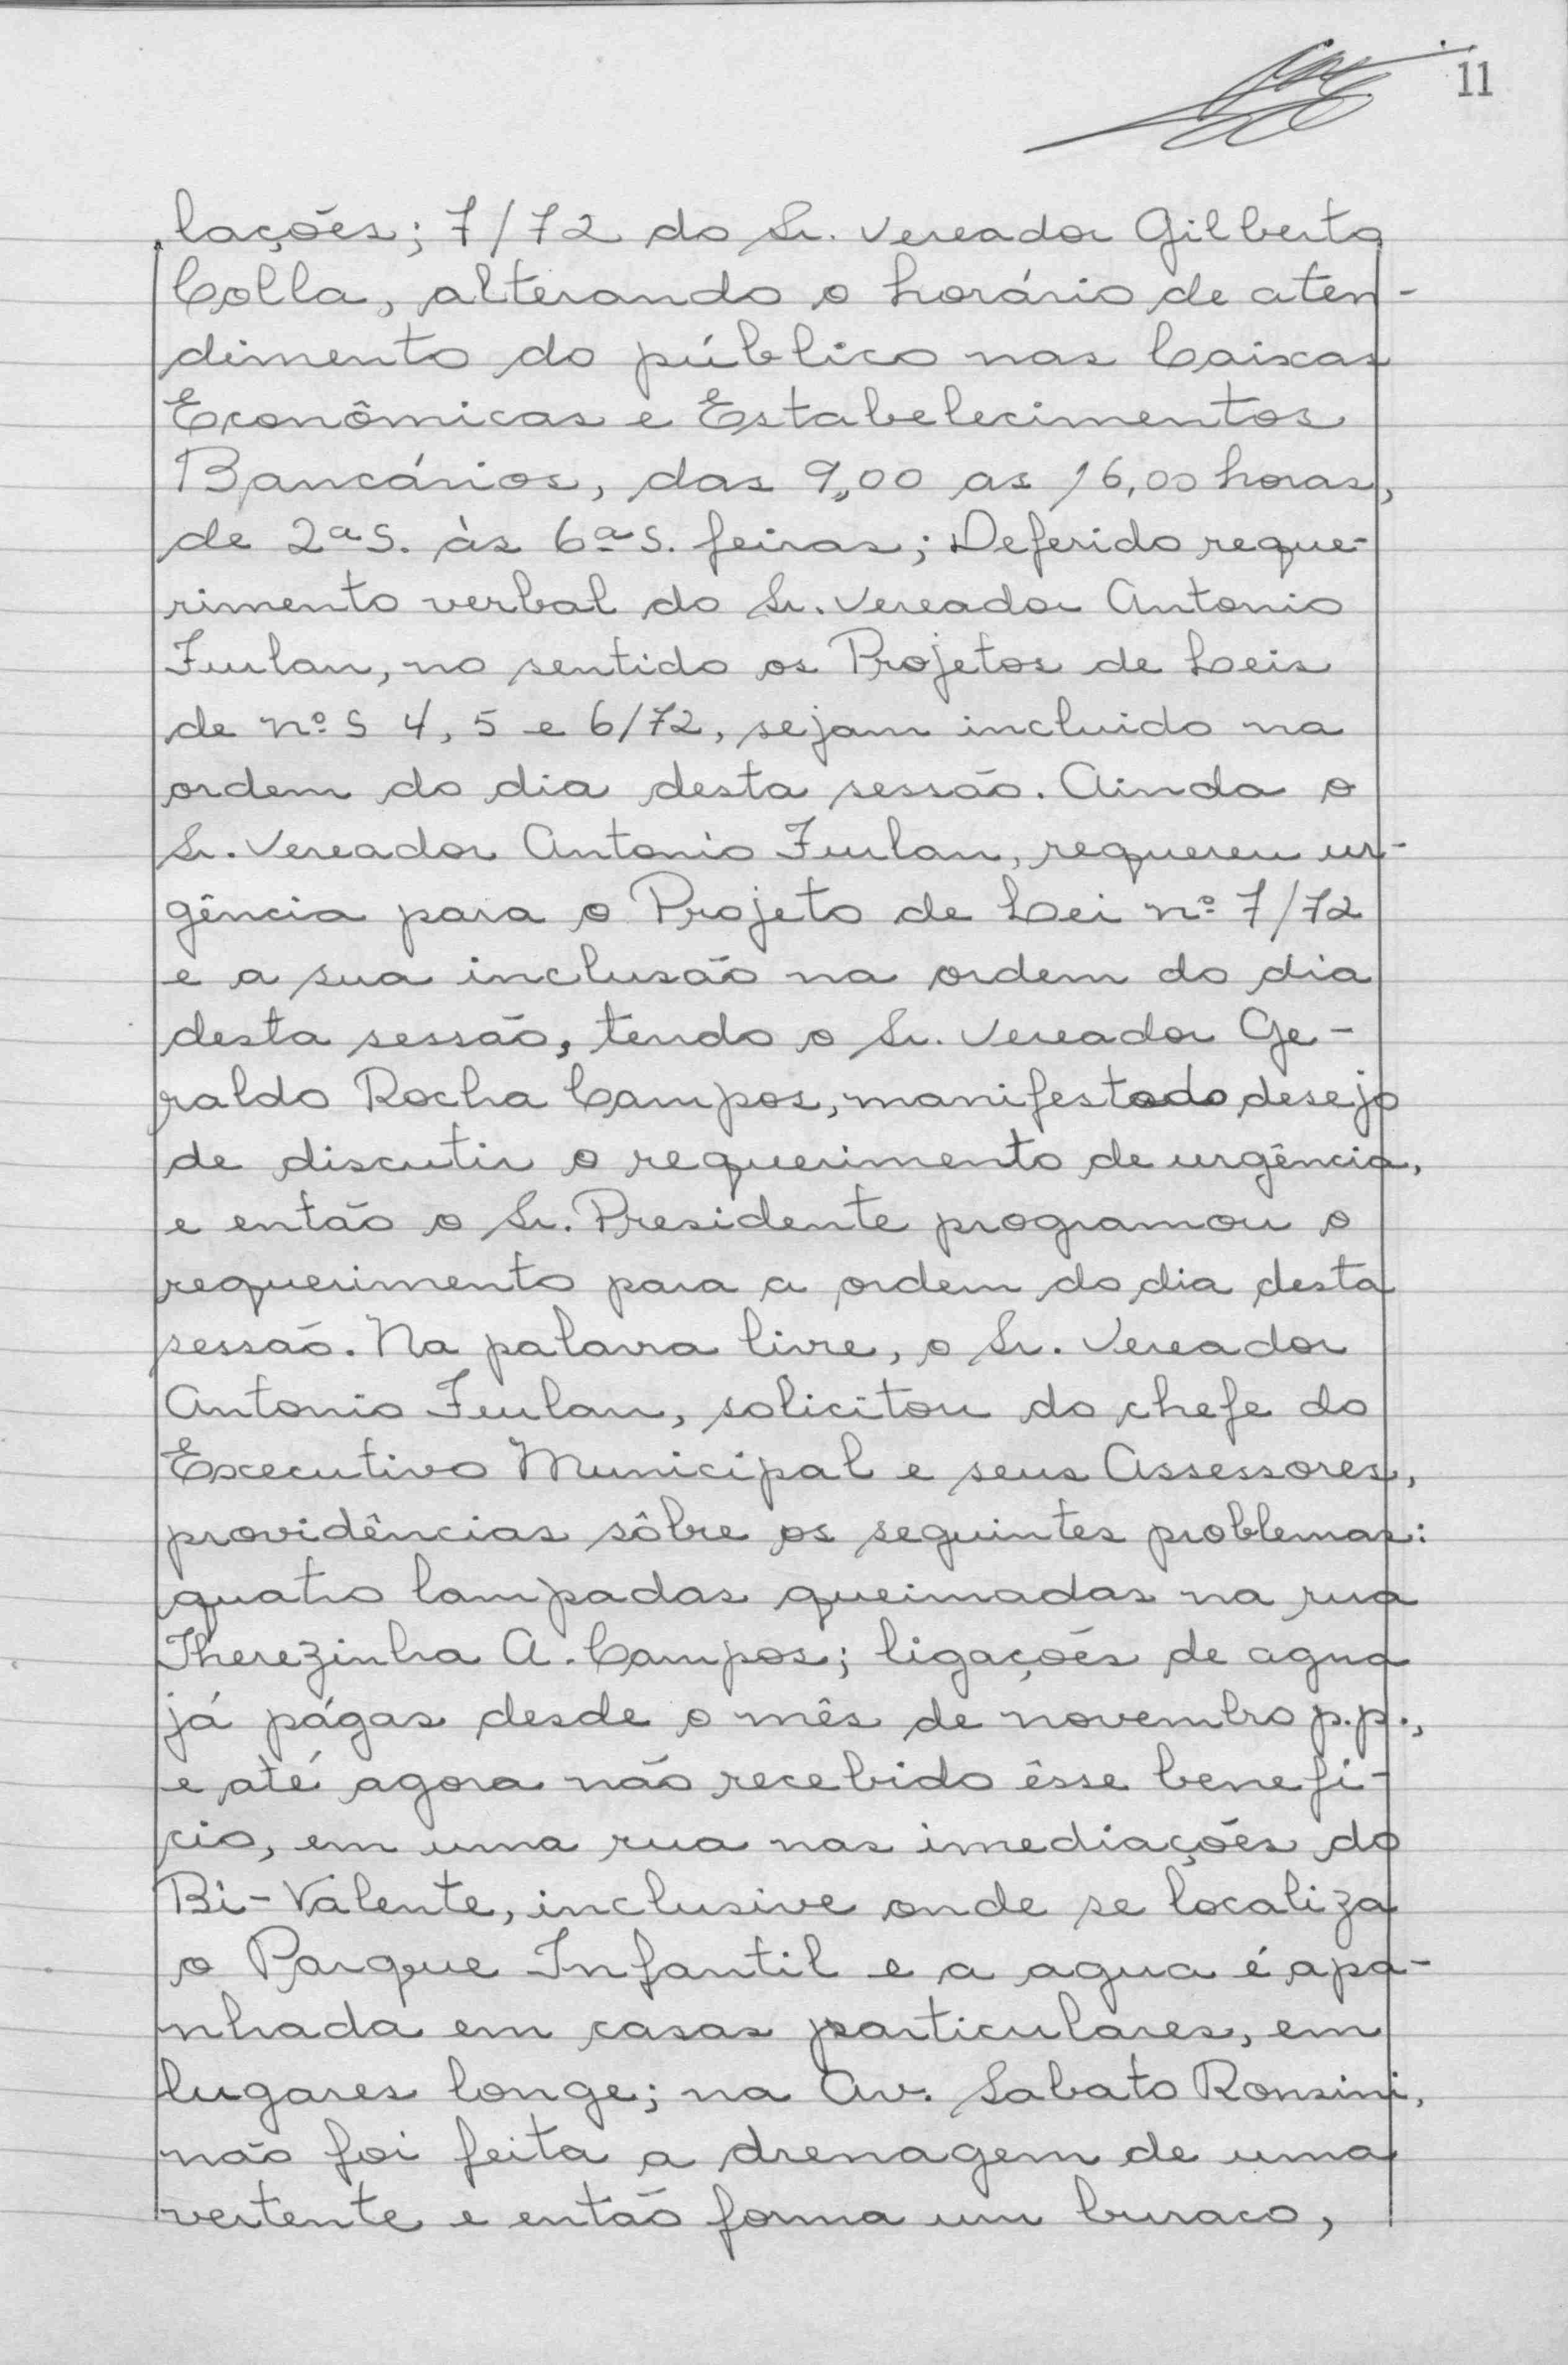 11
lações; 7/72 do Sr. Vereador Gilberto
Colla, alterando o horário de aten-
dimento do público nas Caixas
Econômicas e Estabelecimentos
Bancários, das 9,00 as 16,00 horas,
de 2ªs. às 6ªs. feiras; Deferido reque-
rimento verbal do Sr. Vereador Antonio
Furlan, no sentido os Projetos de Leis
de nºs 4, 5 e 6/72, sejam incluido na
ordem do dia desta sessão. Ainda o
Sr. Vereador Antonio Furlan, requereu ur-
gência para o Projeto de Lei nº 7/72
e a sua inclusão na ordem do dia
desta sessão, tendo o Sr. Vereador Ge-
raldo Rocha Campos, manifestado desejo
de discutir o requerimento de urgência,
e então o Sr. Presidente programou o
requerimento para a ordem do dia desta
sessão. Na palavra livre, o Sr. Vereador
Antonio Furlan, solicitou do chefe do
Executivo Municipal e seus Assessores,
providências sôbre os seguintes problemas:
quatro lampadas queimadas na rua
Therezinha A. Campos; ligações de agua
já págas desde o mês de novembro p.p.,
e até agora não recebido êsse benefi-
cio, em uma rua nas imediações do
Bi-Valente, inclusive onde se localiza
o Parque Infantil e a agua é apa-
nhada em casas particulares, em
lugares longe; na Av. Sabato Ronsini,
não foi feita a drenagem de uma
vertente e então forma um buraco,